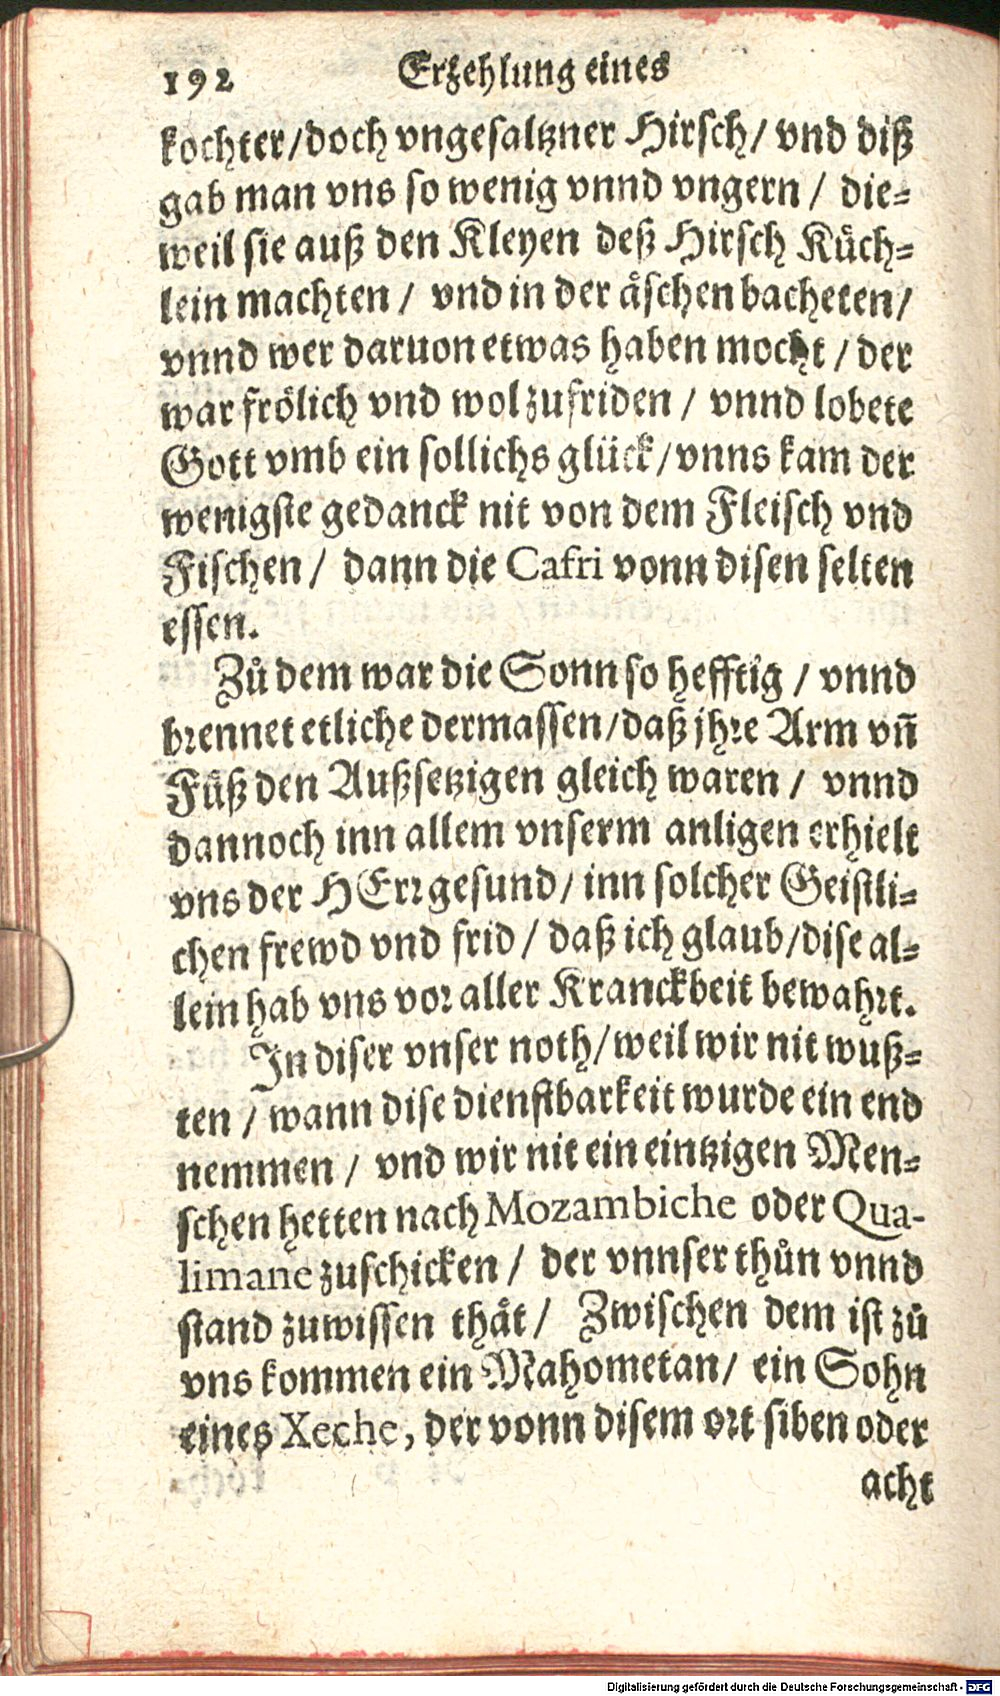 192 Erzehlung eines
kochter/doch vngesaltzner Hirsch/ vnd diß
gab man vns so wenig vnnd vngern / die-
weil sie auß den Kleyen deß Hirsch Kuͤch-
lein machten / vnd in der aͤschen bacheten/
vnnd wer daruon etwas haben mocht / der
war froͤlich vnd wol zufriden / vnnd lobete
Gott vmb ein sollichs gluͤck/vnns kam der
wenigste gedanck nit von dem Fleisch vnd
Fischen / dann die Cafri vonn disen selten
essen.
Zuͦ dem war die Sonn so hefftig / vnnd
brennet etliche dermassen/daß jhre Arm vn̄
Fuͤß den Außsetzigen gleich waren / vnnd
dannoch inn allem vnserm anligen erhielt
vns der HErr gesund/ inn solcher Geistli-
chen frewd vnd frid / daß ich glaub/dise al-
lein hab vns vor aller Kranckbeit bewahrt.
In diser vnser noth/weil wir nit wuß-
ten / wann dise dienstbarkeit wurde ein end
nemmen / vnd wir nit ein eintzigen Men-
schen hetten nach Mozambiche oder Qua-
limane zuschicken / der vnnser thuͦn vnnd
stand zuwissen thaͤt / Zwischen dem ist zuͦ
vns kommen ein Mahometan/ ein Sohn
eines Xeche, der vonn disem ort siben oder
acht
Digitalisierung gefördert durch die Deutsche Forschungsgemeinschaft - DFG